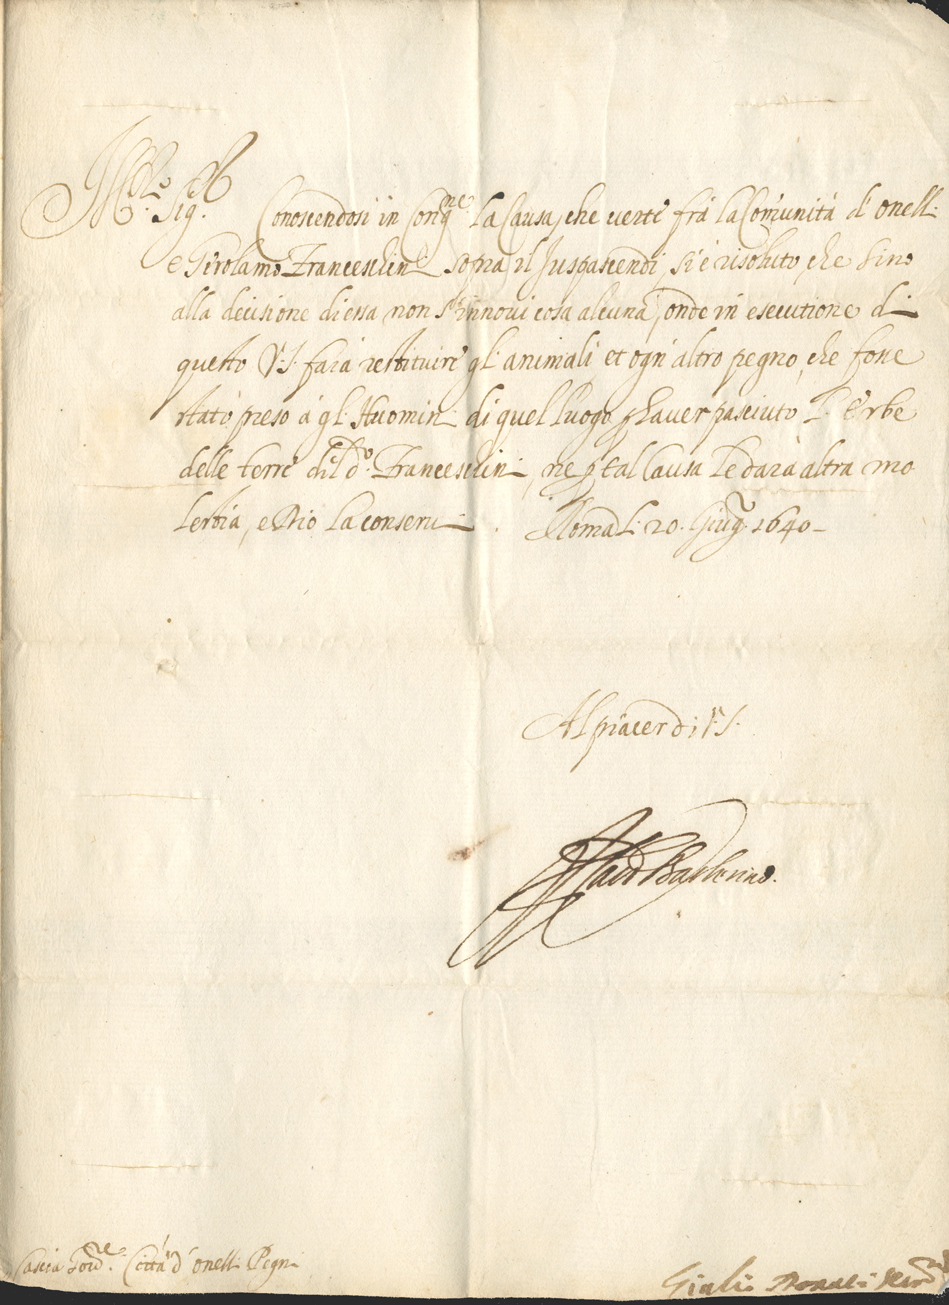 Ill.re Sig.re Conoscendosi in Cong.ne la Causa, che verte frà la Com'unità d' onelli
e Girolamo Franceschini sopra il Juspascendi, si è risoluto, che sino
alla decisione di essa non s'innovi cosa alcuna, onde in esecutione di
questo V.S. farà restituire gl' animali et ogn' altro pegno, che fosse
stato preso à gl' Huomini di quel luogo p haver pasciuto l' erbe
delle terre del d.o Franceschini, ne p tal causa le darà altra mo
lestia, e Dio la conservi. Roma li 20. Giug.o 1640
Al piacer di V.S.
Barberino.
Cascia Gov.re Città d' onelli Pegni
Giulio